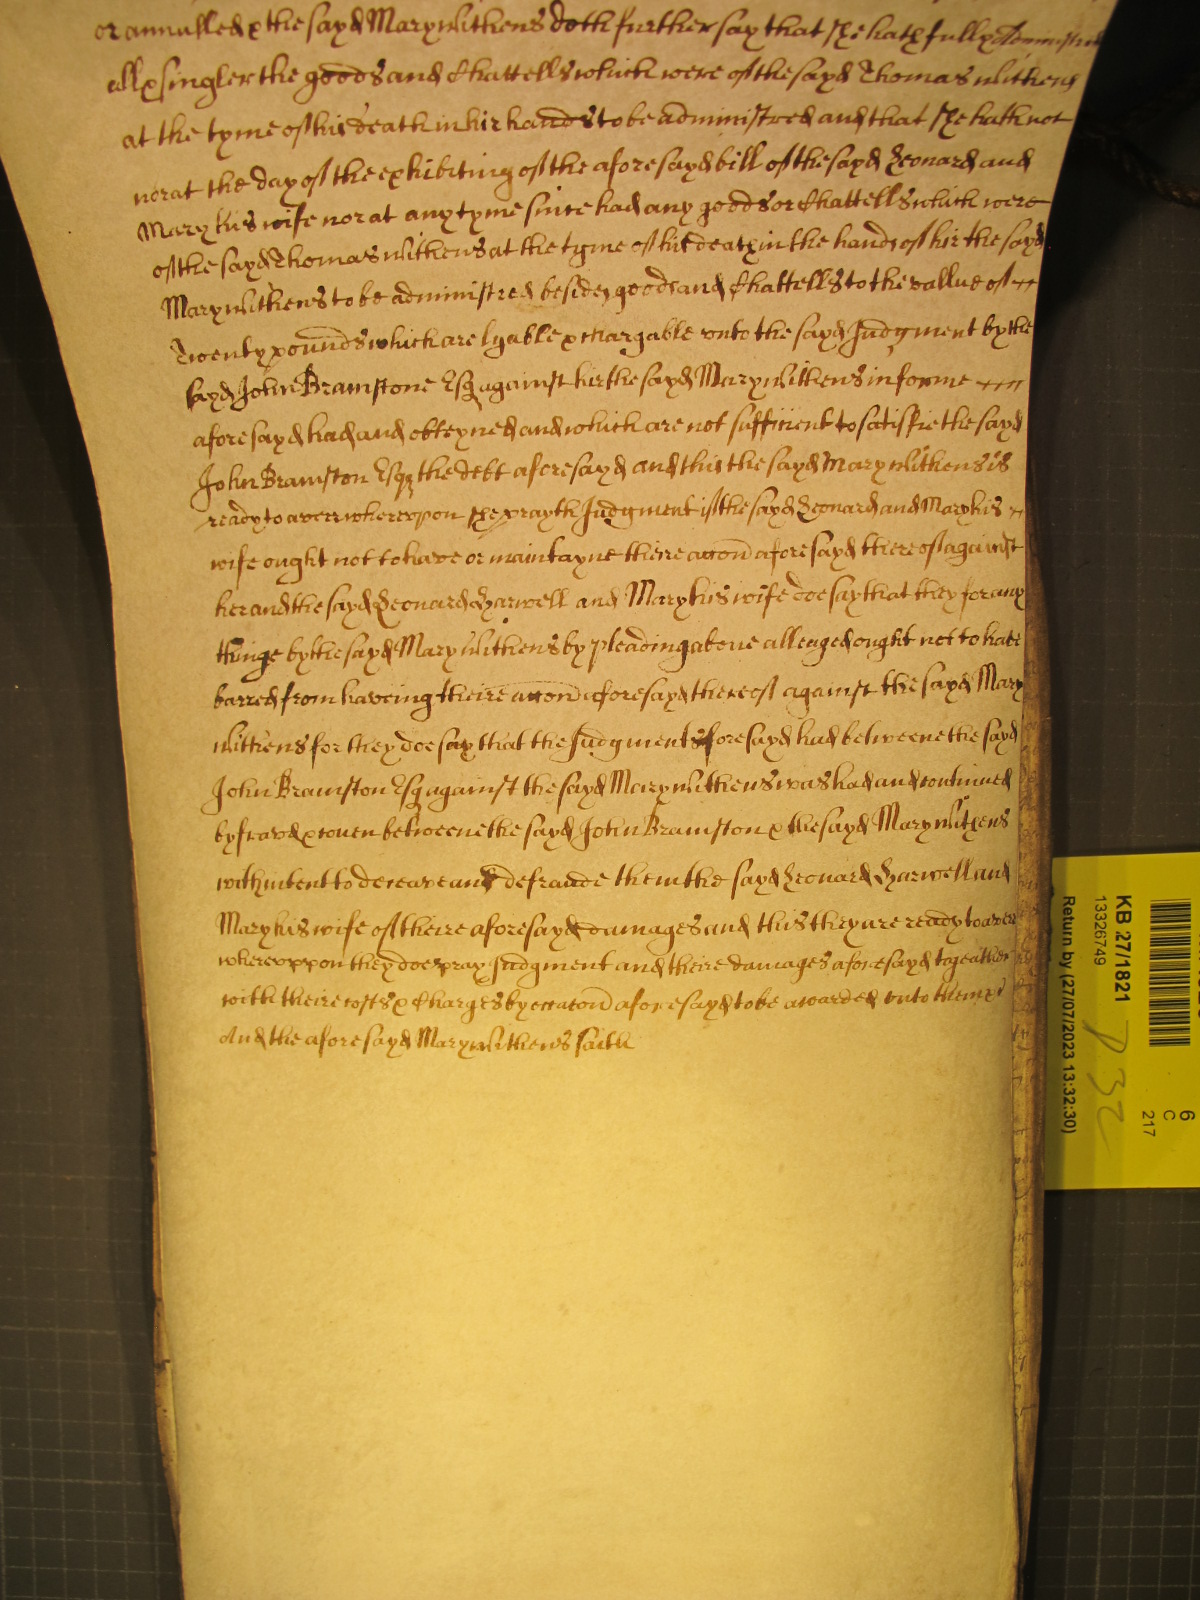 or annulled & the sayd Mary Withens doth further say that she hath fully Administred
all & singler the goods and Chattells which were of the sayd Thomas Withens
at the tyme of his death in hir hands to be administred and that she hath not
nor at the day of the exhibiting of the aforesayd bill of the sayd Leonard and
Mary his wife nor at any tyme since had any goods or Chattells which were
of the sayd Thomas Withens at the tyme of his death in the hands of hir the sayd
Mary Withens to be administred besides goods and Chattells to the vallue of
Twenty pounds which are lyable & chargable vnto the sayd Judgment by the
sayd John Bramstone Esq against hir the sayd Mary Withens in forme
aforesayd had and obteyned and which are not sufficient to satisfie the sayd
John Bramston Esq the debt aforesayd and this the sayd Mary Withens is
ready to averr wherevpon she prayth Judgment if the sayd Leonard and Mary his
wife ought not to have or maintayne theire accon aforesayd thereof against
her and the sayd Leonard Harwell and Mary his wife doe say that they for any
thinge by the sayd Mary Withens by pleading above alleaged ought not to have
barred from haveing theire accon aforesayd thereof against the sayd Mary
Withens for they doe say that the Judgment aforesayd had betweene the sayd
John Bramston Esq against the sayd Mary Withens was had and continued
by fraud & coven betweene the sayd John Bramston & the sayd Mary Withens
with intent to deceave and defraude them the sayd Leonard Harwell and
Mary his wife of theire aforesayd damages and this they are ready to averr
wherevppon they doe pray Judgment and theire damages aforesayd togeather
with theire costs & Charges by occacon aforesayd to be awarded vnto them &c
And the aforesayd Mary Withens saith
KB 27/1821
1332649
Return by (27/07/2023 13:32:30)
6
C
217
P 32